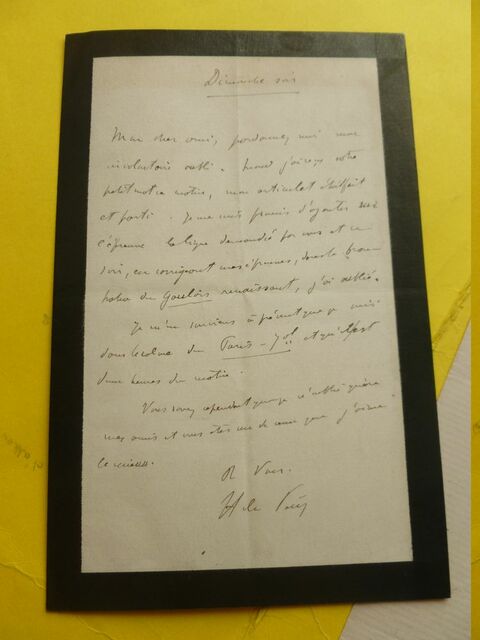 Dimanche soir
Mon cher ami, pardonnez moi mon
involontaire oubli. Quand j'ai reçu votre
petit mot ce matin, mon article était fait
et parti. Je me suis promis d'ajouter sur
l'épreuve la ligne demandée par vous et ce
soir, en corrigeant mes épreuves, dans le brou
haha du Gaulois renaissant, j'ai oublié.
Je m'en souviens à présent que je suis
dans le calme du Paris-Jal et qu'il est
deux heures du matin.
Vous savez cependant que je n'oublie guère
mes amis et vous êtes un de ceux que j'aime
le mieux.
A Vous.
H de